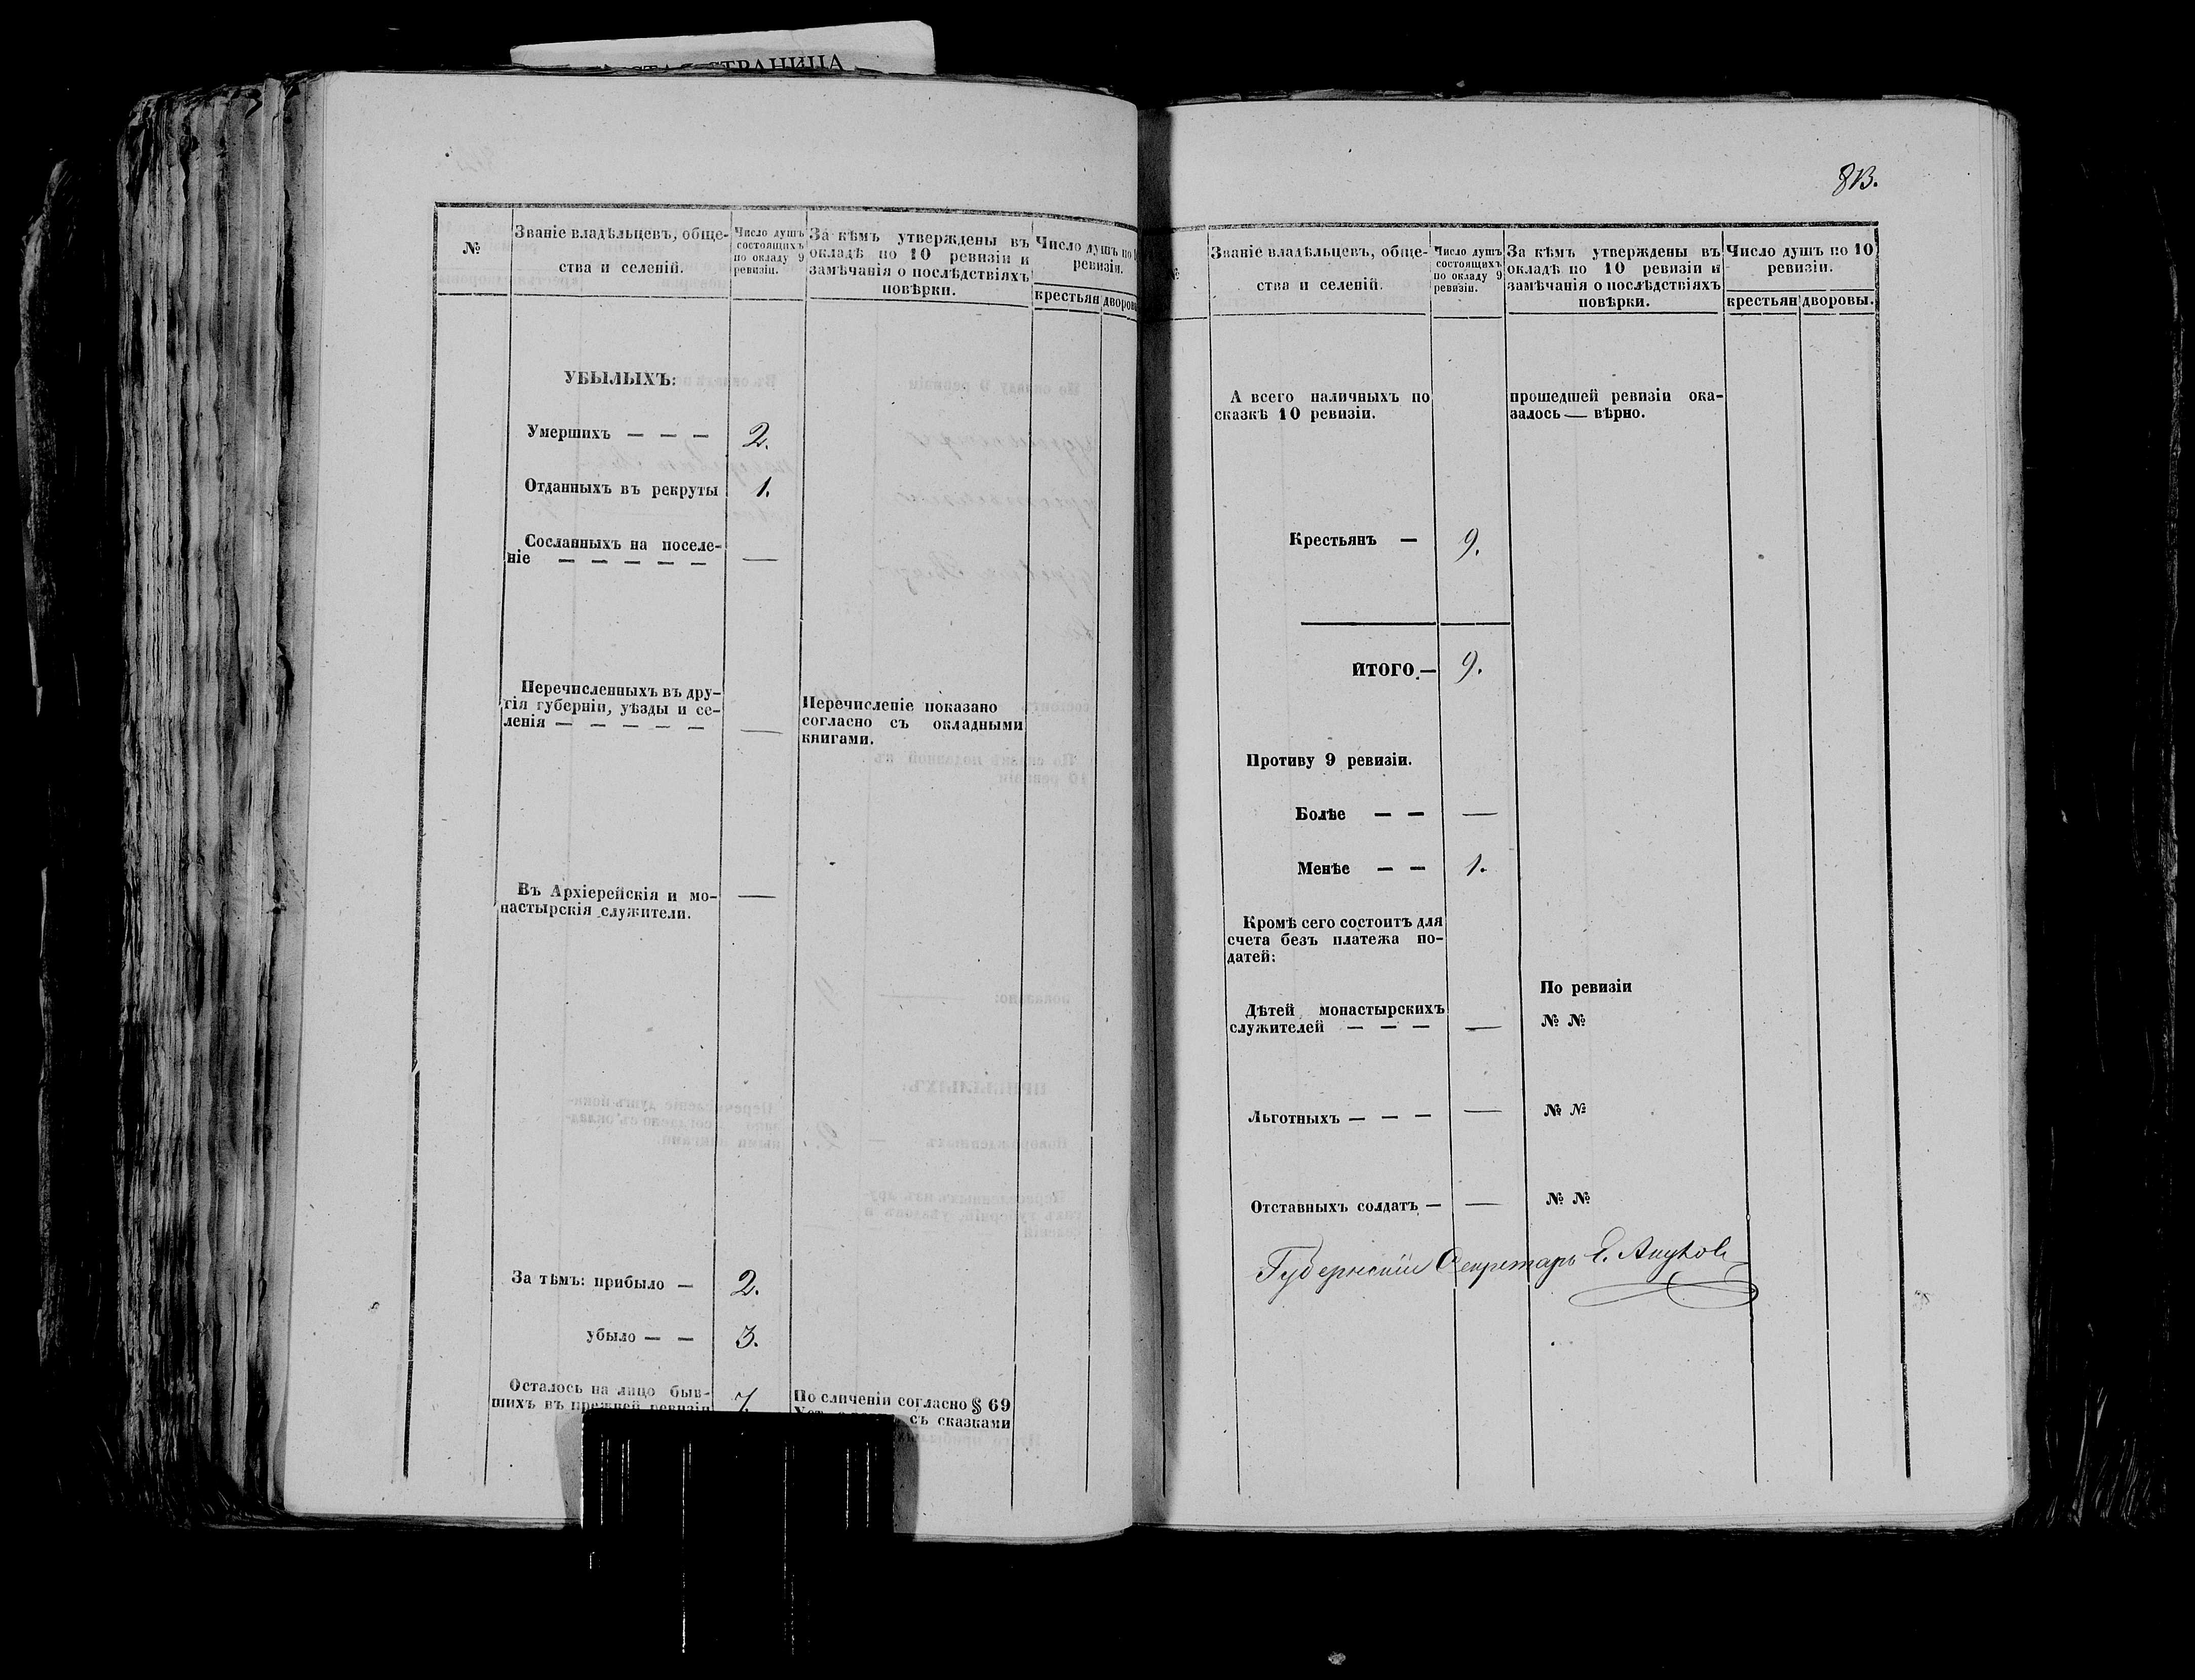 СТРАНИЦА
№
Званіе владѣльцевъ, обще-
ства и селеній.
Число душъ
состоящихъ
по окладу 9
ревизіи.
За кѣмъ утверждены въ
окладѣ по 10 ревизіи и
замѣчанія о послѣдствіяхъ
повѣрки.
Число душъ по 10
ревизіи.
крестьян
дворовы
УБЫЛЫХЪ:
Умершихъ — — — 2.
Отданныхъ въ рекруты 1.
Сосланныхъ на поселе-
ніе — — — — — —
Перечисленныхъ въ дру-
гія губерніи, уѣзды и се-
ленія — — — — — —
Перечисленіе показано
согласно съ окладными
книгами.
Въ Архіерейскія и мо- —
настырскія служители.
За тѣмъ: прибыло — 2.
убыло — — 3.
Осталось на лицо быв- 7.
шихъ въ прежней ревизіи
По сличеніи согласно § 69
съ сказками
813.
№
Званіе владѣльцевъ, обще-
ства и селеній.
Число душъ
состоящихъ
по окладу 9
ревизіи.
За кѣмъ утверждены въ
окладѣ по 10 ревизіи и
замѣчанія о послѣдствіяхъ
повѣрки.
Число душъ по 10
ревизіи.
крестьян
дворовы.
А всего наличныхъ по
сказкѣ 10 ревизіи.
прошедшей ревизіи ока-
залось — вѣрно.
Крестьянъ — 9.
ИТОГО — 9.
Противу 9 ревизіи.
Болѣе — — —
Менѣе — — 1.
Кромѣ сего состоитъ для
счета безъ платежа по-
датей:
По ревизіи
Дѣтей монастырскихъ
служителей — — — —
№ №
Льготныхъ — — — — № №
Отставныхъ солдатъ — — № №
Губернскій Секретарь